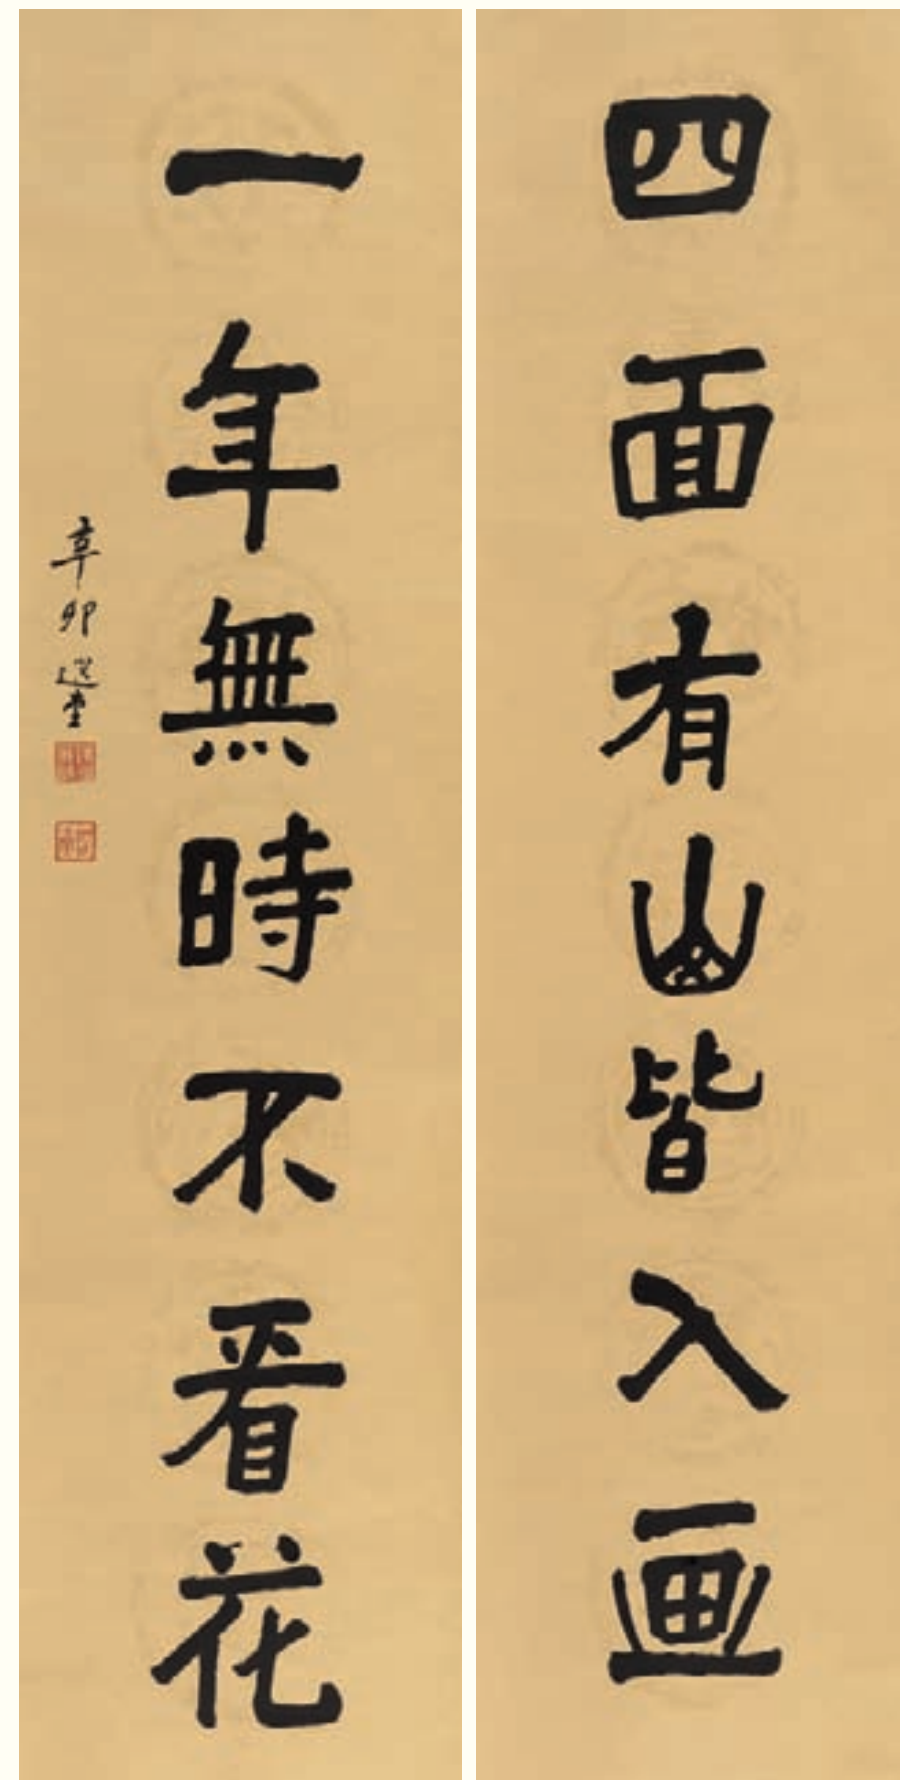 四面有山皆入画
一年無時不看花
辛卯選堂